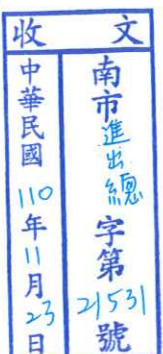 收文
南市進出總字第21531號
中華民國110年11月23日